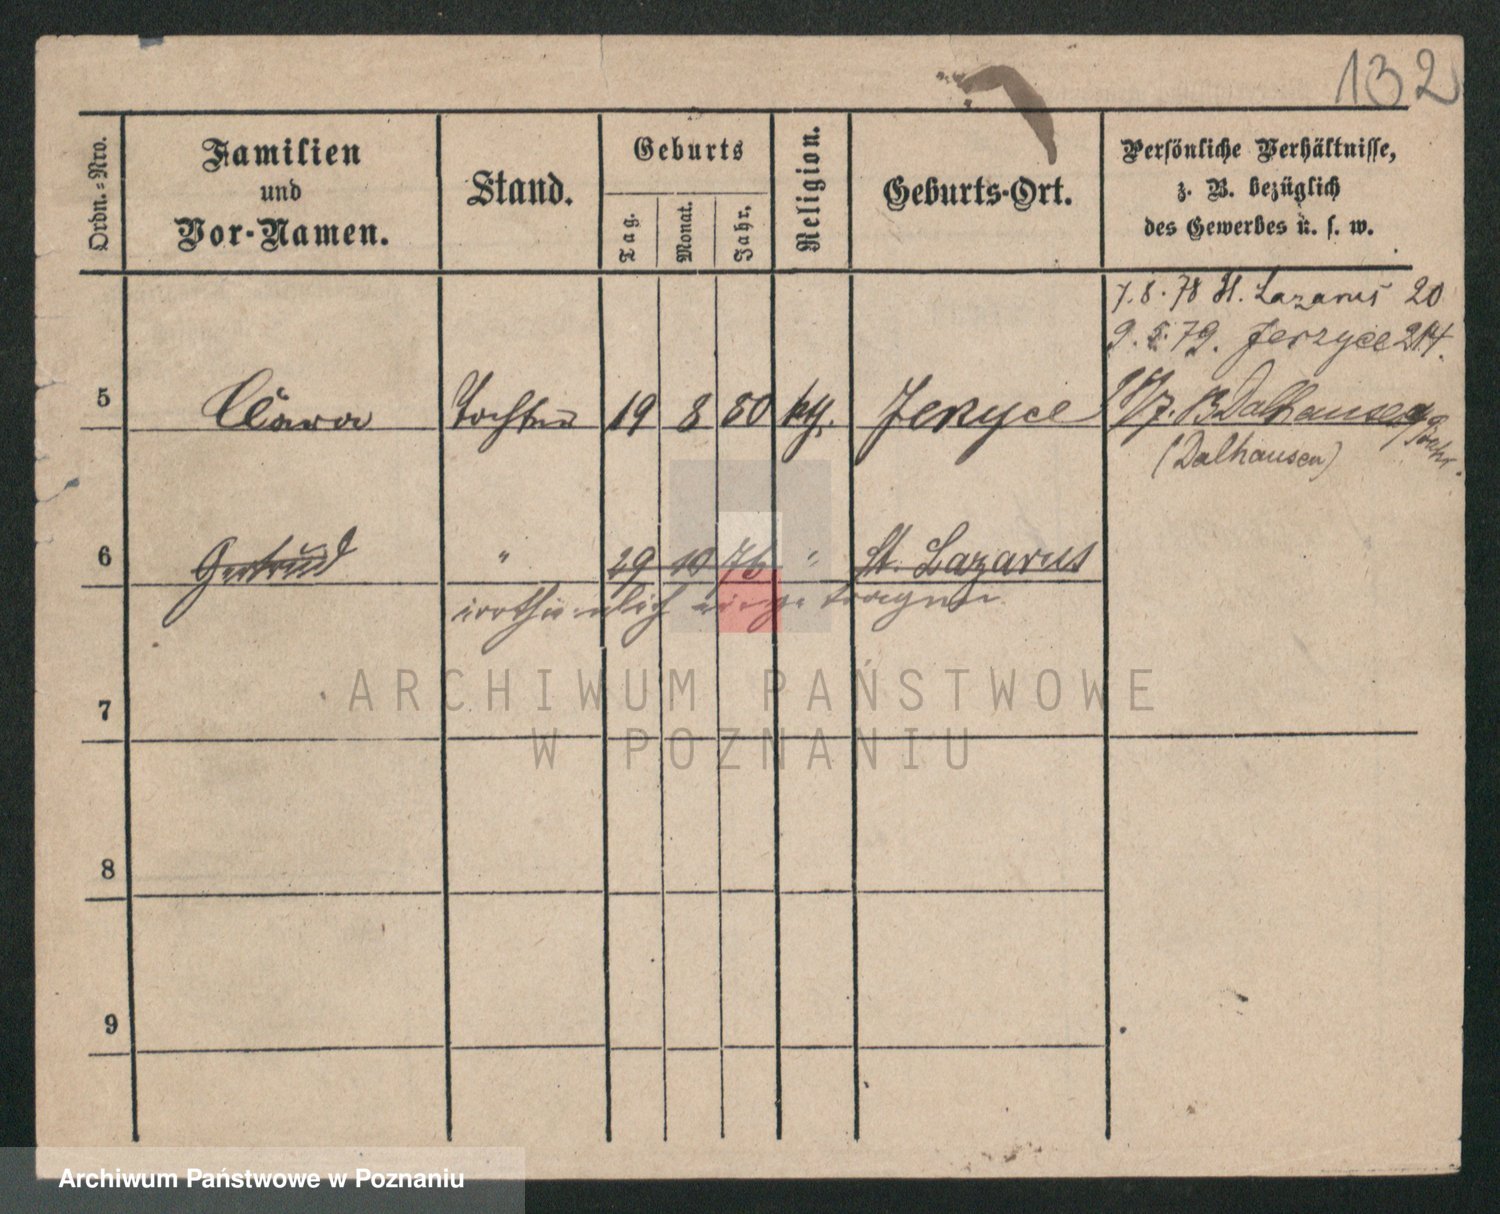 132
Ordn.=Nro.
Familien
und
Vor-Namen.
Stand.
Geburts
Tag.
Monat.
Jahr.
Religion.
Geburts-Ort.
Persönliche Verhältnisse,
z. B. bezüglich
des Gewerbes u. s. w.
7.8.78 St. Lazarus 20
9.5.79. Jerzyce 214.
5 Clara Tochter 19 8 80 kth. Jerzyce
Dalhausen
(Dalhausen)
6 Gertrud " 29 10 76 " St. Lazarus
irrthümlich eingetragen
7
ARCHIWUM PAŃSTWOWE
W POZNANIU
8
9
Archiwum Państwowe w Poznaniu